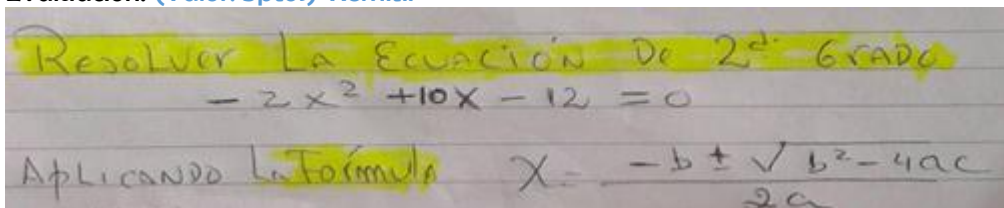 Resolver La Ecuación De 2d. Grado
- 2x² +10x - 12 = 0
Aplicando La Formula X = -b ± √ b² - 4ac
2a